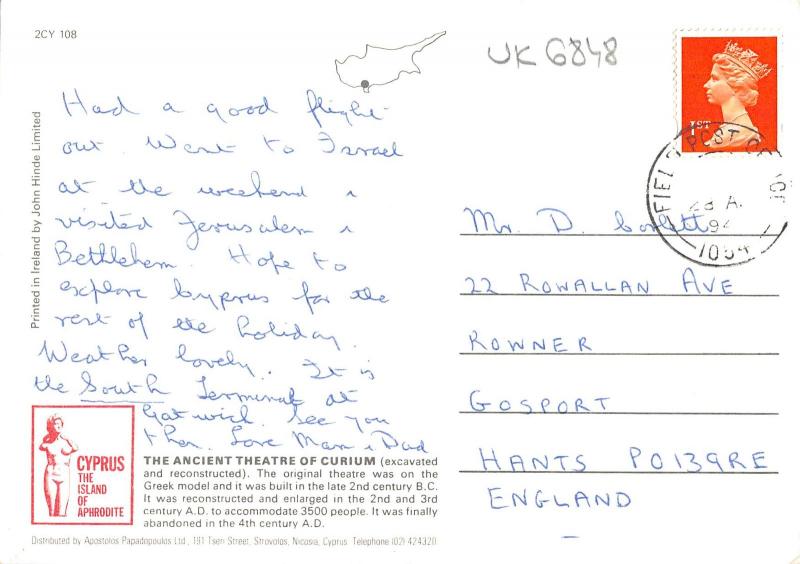 2CY 108
UK 6848
1ST
FIELD POST OFFICE
28 A
94
1054
Printed in Ireland by John Hinde Limited
Had a good flight
out. Went to Israel
at the weekend &
visited Jerusalem &
Bethlehem. Hope to
explore Cyprus for the
rest of the holiday.
Weather lovely. It is
the South Terminal at
Gatwick. See you
then. Love Mam & Dad
Mr. D. Corlett
22 ROWALLAN AVE
ROWNER
GOSPORT
HANTS PO139RE
ENGLAND
CYPRUS
THE
ISLAND
OF
APHRODITE
THE ANCIENT THEATRE OF CURIUM (excavated
and reconstructed). The original theatre was on the
Greek model and it was built in the late 2nd century B.C.
It was reconstructed and enlarged in the 2nd and 3rd
century A.D. to accommodate 3500 people. It was finally
abandoned in the 4th century A.D.
Distributed by Apostolos Papadopoulos Ltd., 191 Tseri Street, Strovolos, Nicosia, Cyprus. Telephone (02) 424320